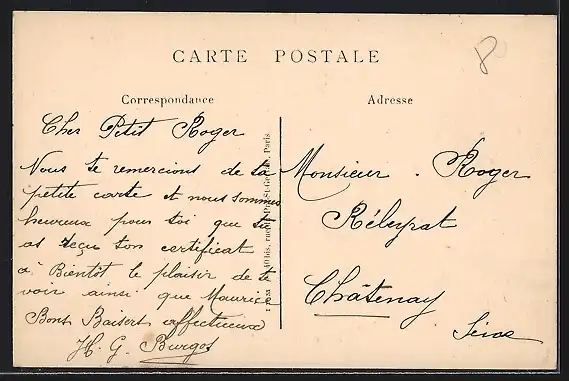 CARTE POSTALE
Correspondance
Adresse
Cher Petit Roger
Nous te remercions de ta
petite carte et nous sommes
heureux pour toi que tu
as reçu ton certificat
à Bientôt le plaisir de te
voir ainsi que Maurice
Bons Baisers affectueux
H. G. Burgos
Monsieur . Roger
Réleyrat
Châtenay
Seine
8
bis, rue Paris